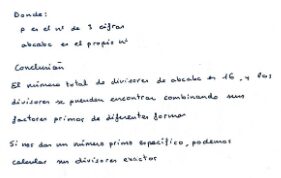 Donde:
p es el nº de 3 cifras
abcabc es el propio nº
Conclusión
El número total de divisores de abcabc es 16, y los
divisores se pueden encontrar combinando sus
factores primos de diferentes formas
Si nos dan un número primo específico, podemos
calcular sus divisores exactos